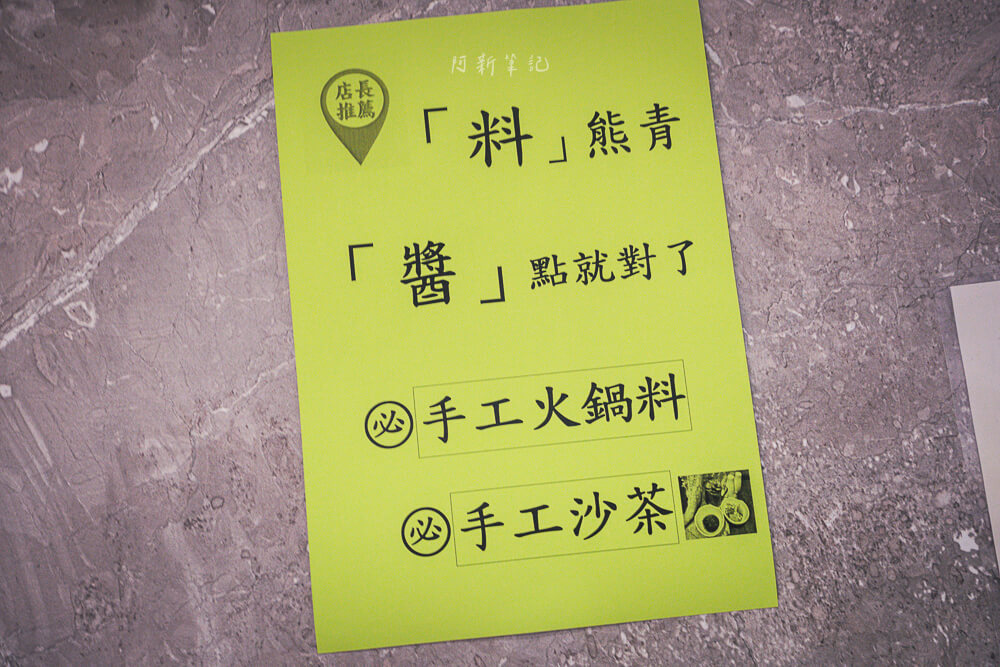 阿新筆記
店長
推薦
「料」熊青
「醬」點就對了
必 手工火鍋料
必 手工沙茶